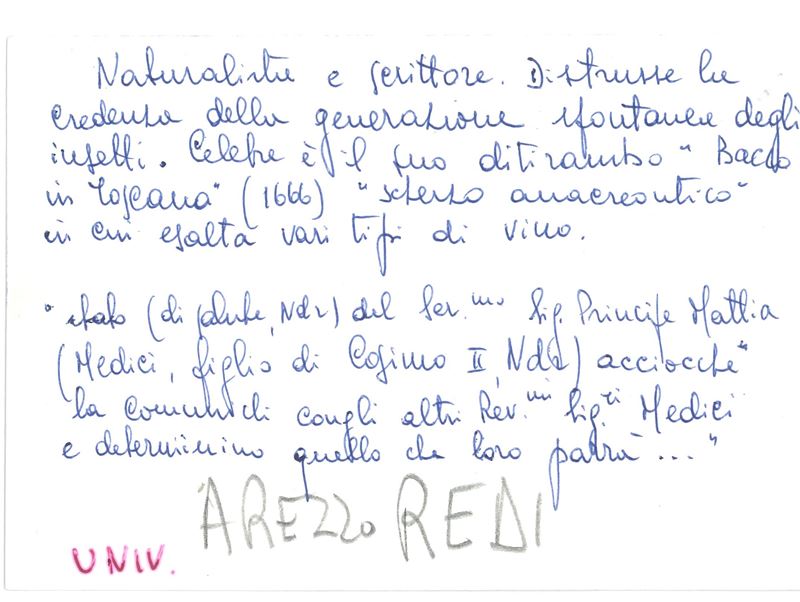 Naturalista e scrittore. Distrusse la
credenza della generazione spontanea degli
insetti. Celebre è il suo ditirambo "Bacco
in Toscana" (1666) "scherzo anacreontico"
in cui esalta vari tipi di vino.
"stato (di salute, Ndr) del Ser.mo Sig. Principe Mattia
(Medici, figlio di Cosimo II, Ndr) acciocchè
la comunichi congli altri Rev.mi Sig.ri Medici
e determinino quello che loro parrà..."
AREZZO REDI
UNIV.